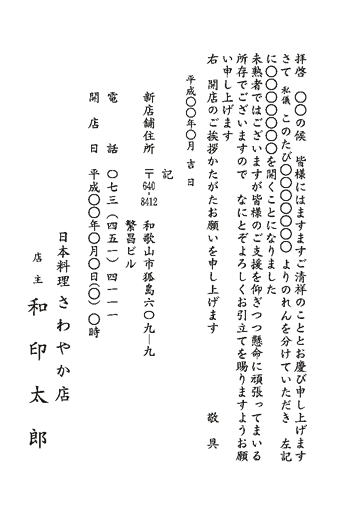 拝啓　〇〇の候　皆様にはますますご清祥のこととお慶び申し上げます
さて　私儀　このたび〇〇〇〇〇〇よりのれんを分けていただき　左記
に〇〇〇〇〇〇を開くことになりました
未熟者ではございますが皆様のご支援を仰ぎつつ懸命に頑張ってまいる
所存でございますので　なにとぞよろしくお引立てを賜りますようお願
い申し上げます
右　開店のご挨拶かたがたお願いを申し上げます　敬具
平成〇〇年〇月吉日
記
新店舗住所　〒640-8412　和歌山市狐島六〇九―九
繁昌ビル
電話　〇七三（四五一）四一一一
開店日　平成〇〇年〇月〇日（〇）〇時
日本料理さわやか店
店主　和印太郎